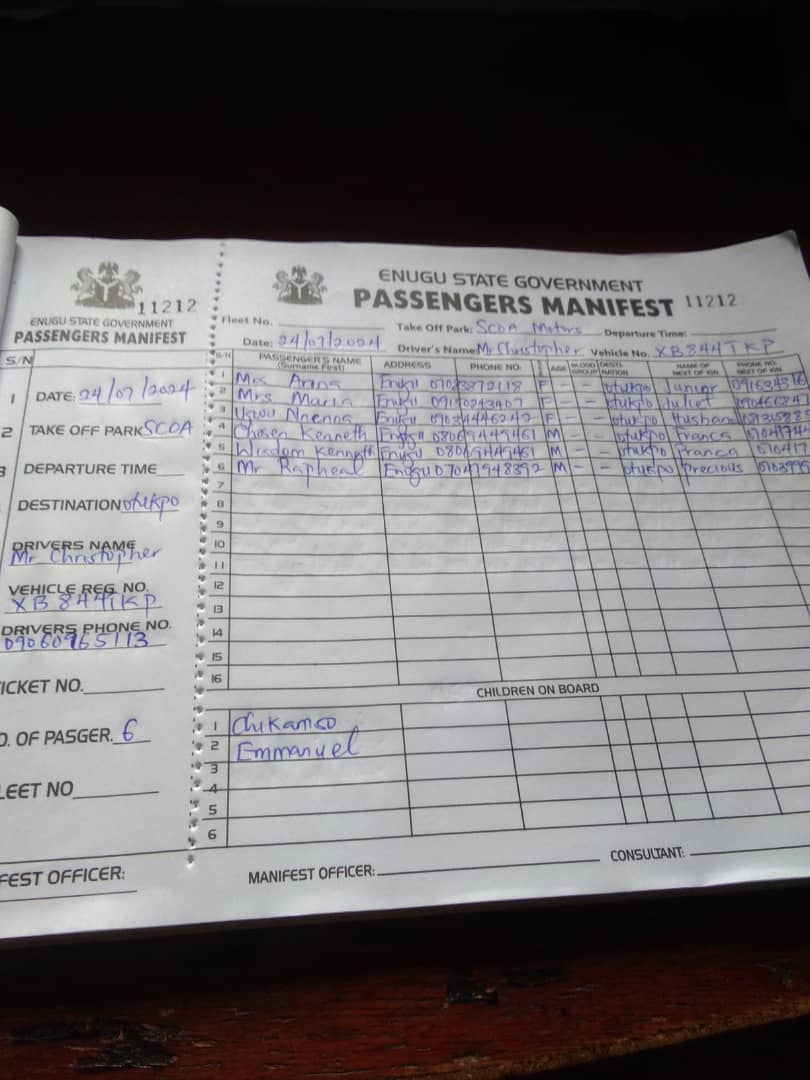 11212
ENUGU STATE GOVERNMENT
PASSENGERS MANIFEST
S/N
1 DATE: 24/07/2024
2 TAKE OFF PARK SCOA
3 DEPARTURE TIME
DESTINATION otukpo
DRIVERS NAME
Mr Christopher
VEHICLE REG. NO.
XB844TKP
DRIVERS PHONE NO.
09060965113
ICKET NO.
O. OF PASGER. 6
LEET NO
FEST OFFICER:
ENUGU STATE GOVERNMENT
PASSENGERS MANIFEST 11212
Fleet No. Take Off Park: SCOA Motors Departure Time:
Date: 24/07/2024 Driver's Name: Mr Christopher Vehicle No. XB844TKP
S/N PASSENGER'S NAME (Surname First) ADDRESS PHONE NO. AGE BLOOD GROUP DESTI-NATION NAME OF NEXT OF KIN PHONE NO. NEXT OF KIN
1 Mrs Enugu F - - otukpo Junior
2 Mrs Maria Enugu 09150243407 F - - otukpo Juliet
3 Nnenna Enugu F - - otukpo Husband
4 Chosen Kenneth Enugu 08069449461 M - - otukpo Franca
5 Wisdom Kenneth Enugu 08069449461 M - - otukpo Franca
6 Mr Rapheal Enugu 07041948392 M - - otukpo Precious
7
8
9
10
11
12
13
14
15
16
CHILDREN ON BOARD
1 Chikamso
2 Emmanuel
3
4
5
6
MANIFEST OFFICER: CONSULTANT: